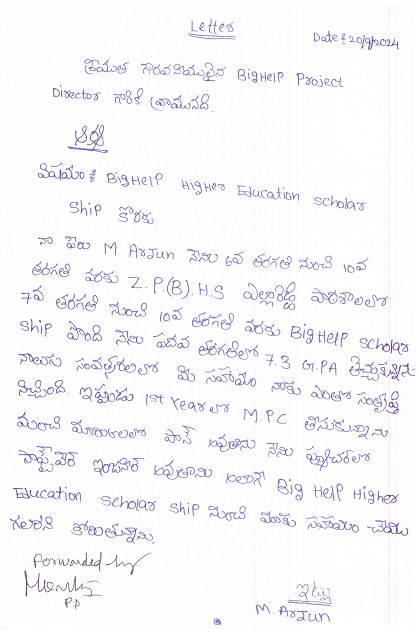 Letter
Date : 20/9/2024
శ్రీమత గౌరవనీయులైన BigHelp Project
Director గారికి వ్రాయునది.
ఆర్య
విషయం : BIGHelp Higher Education Scholar
Ship కొరకు
నా పేరు M. Arjun నేను 6వ తరగతి నుంచి 10వ
తరగతి వరకు Z.P.(B).H.S ఎల్లారెడ్డి పాఠశాలలో
7వ తరగతి నుంచి 10వ తరగతి వరకు Big Help Scholar
Ship పొంది నేను పదవ తరగతిలో 7.3 G.PA తెచ్చుకున్నాను
నాలుగు సంవత్సరాలలో మీ సహాయం నాకు ఎంతో సంతృప్తి
నిచ్చింది. ఇప్పుడు 1st Year లో M.P.C తీసుకున్నాను
మంచి మార్కులలో పాస్ అవుతాను నేను ఫ్యూచర్లో
సాఫ్ట్వేర్ ఇంజనీర్ అవుతాను అలాగే Big Help Higher
Education Scholar Ship నుంచి మాకు సహాయం చేయ
గలరని కోరుతున్నాను.
Forwarded by
P.D
ఇట్లు
M. Arjun